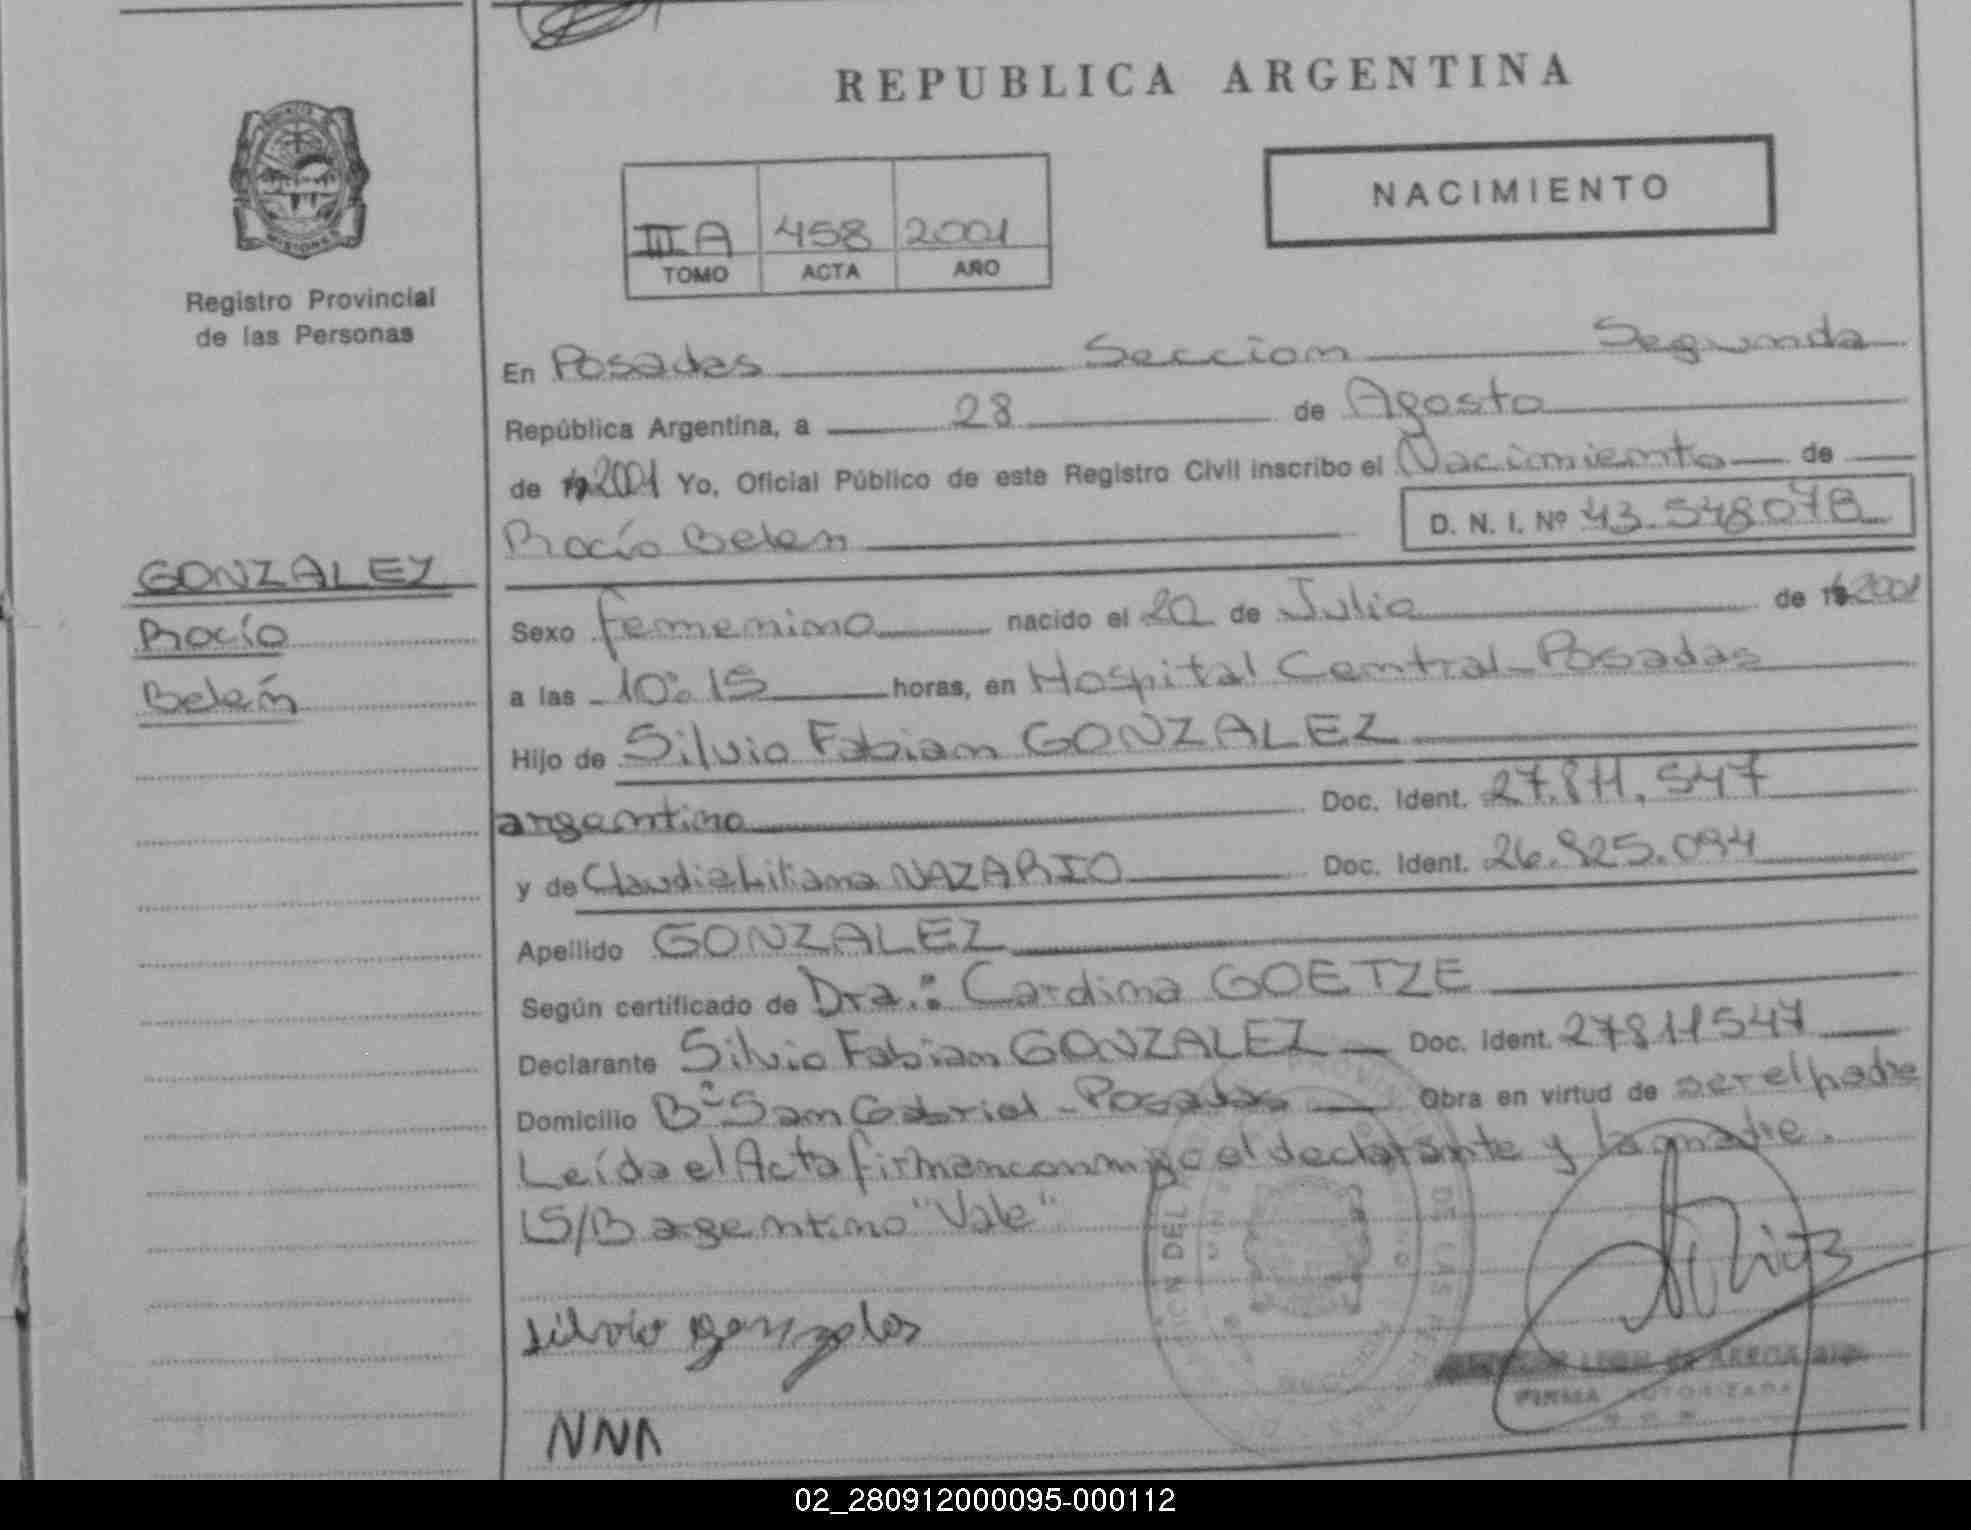 REPUBLICA ARGENTINA
NACIMIENTO
III A 458 2001
TOMO ACTA AÑO
MISIONES
Registro Provincial
de las Personas
En Posadas Seccion Segunda
República Argentina, a 28 de Agosto
de 19 2001 Yo, Oficial Público de este Registro Civil inscribo el Nacimiento de
Rocío Belen D. N. I. Nº 43.548078
GONZALEZ
Rocío
Belén
Sexo femenino nacido el 20 de Julio de 2001
a las 10:15 horas, en Hospital Central - Posadas
Hijo de Silvio Fabian GONZALEZ
argentino Doc. Ident. 27.811.547
y de Claudia Liliana NAZARIO Doc. Ident. 26.825.094
Apellido GONZALEZ
Según certificado de Dra.: Cardina GOETZE
Declarante Silvio Fabian GONZALEZ Doc. Ident. 27811547
Domicilio Bº San Gabriel - Posadas Obra en virtud de ser el padre
Leída el Acta firman conmigo el declarante y la madre.
LS/B agentino "Vale"
silvio gonzales
FIRMA AUTORIZADA
NNA
02_280912000095-000112